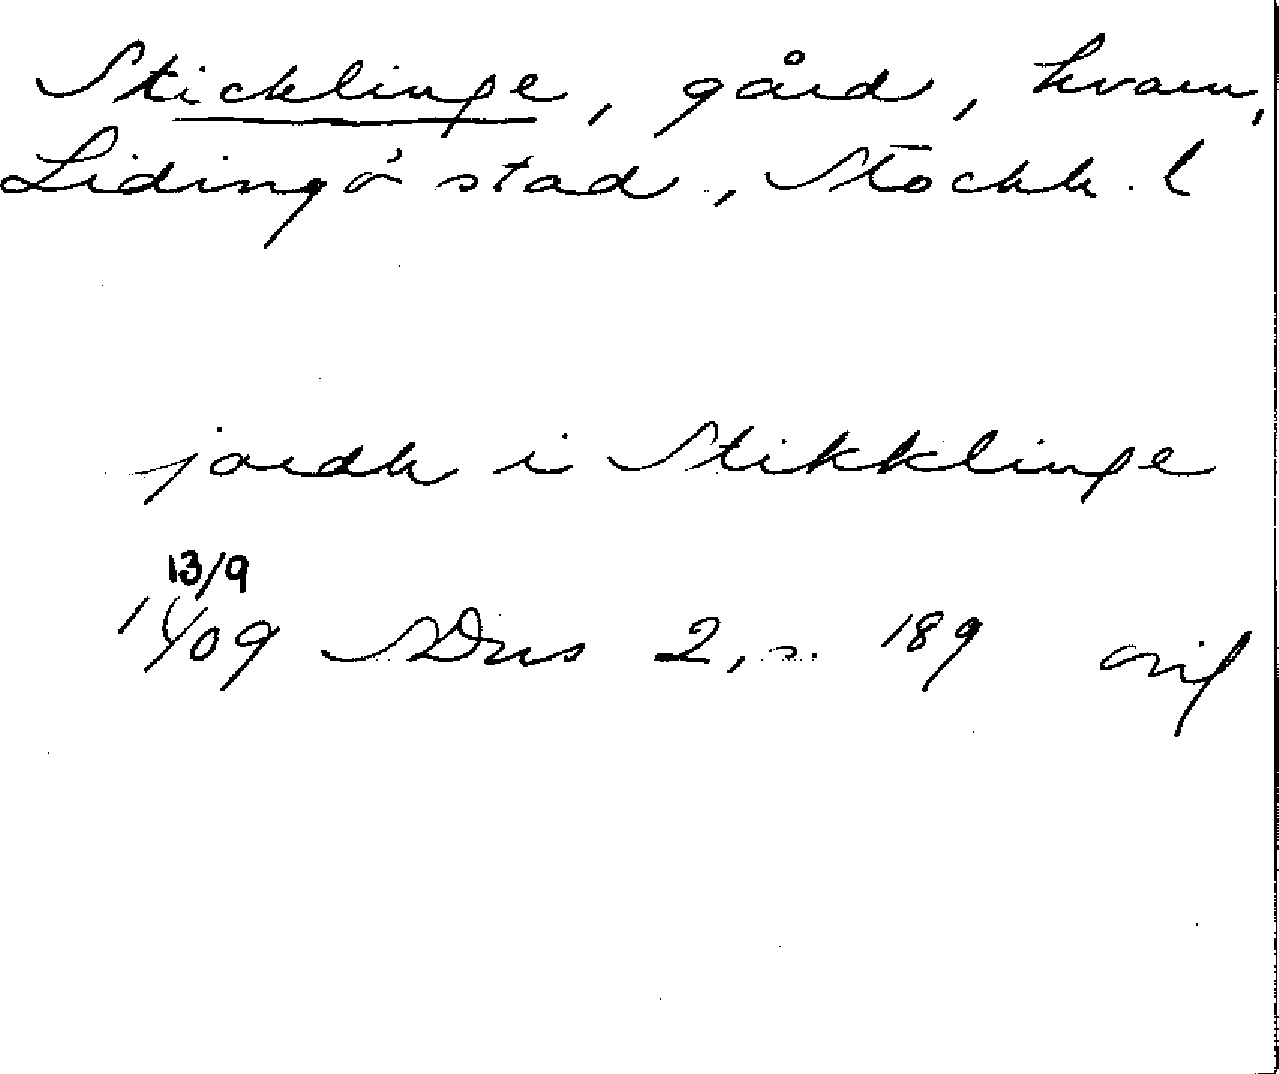 Sticklinge, gård, kvarn,
Lidingö stad, Stockh. l
jordh i Stikklinge
13/9
1409 SDns 2, s. 189 orig